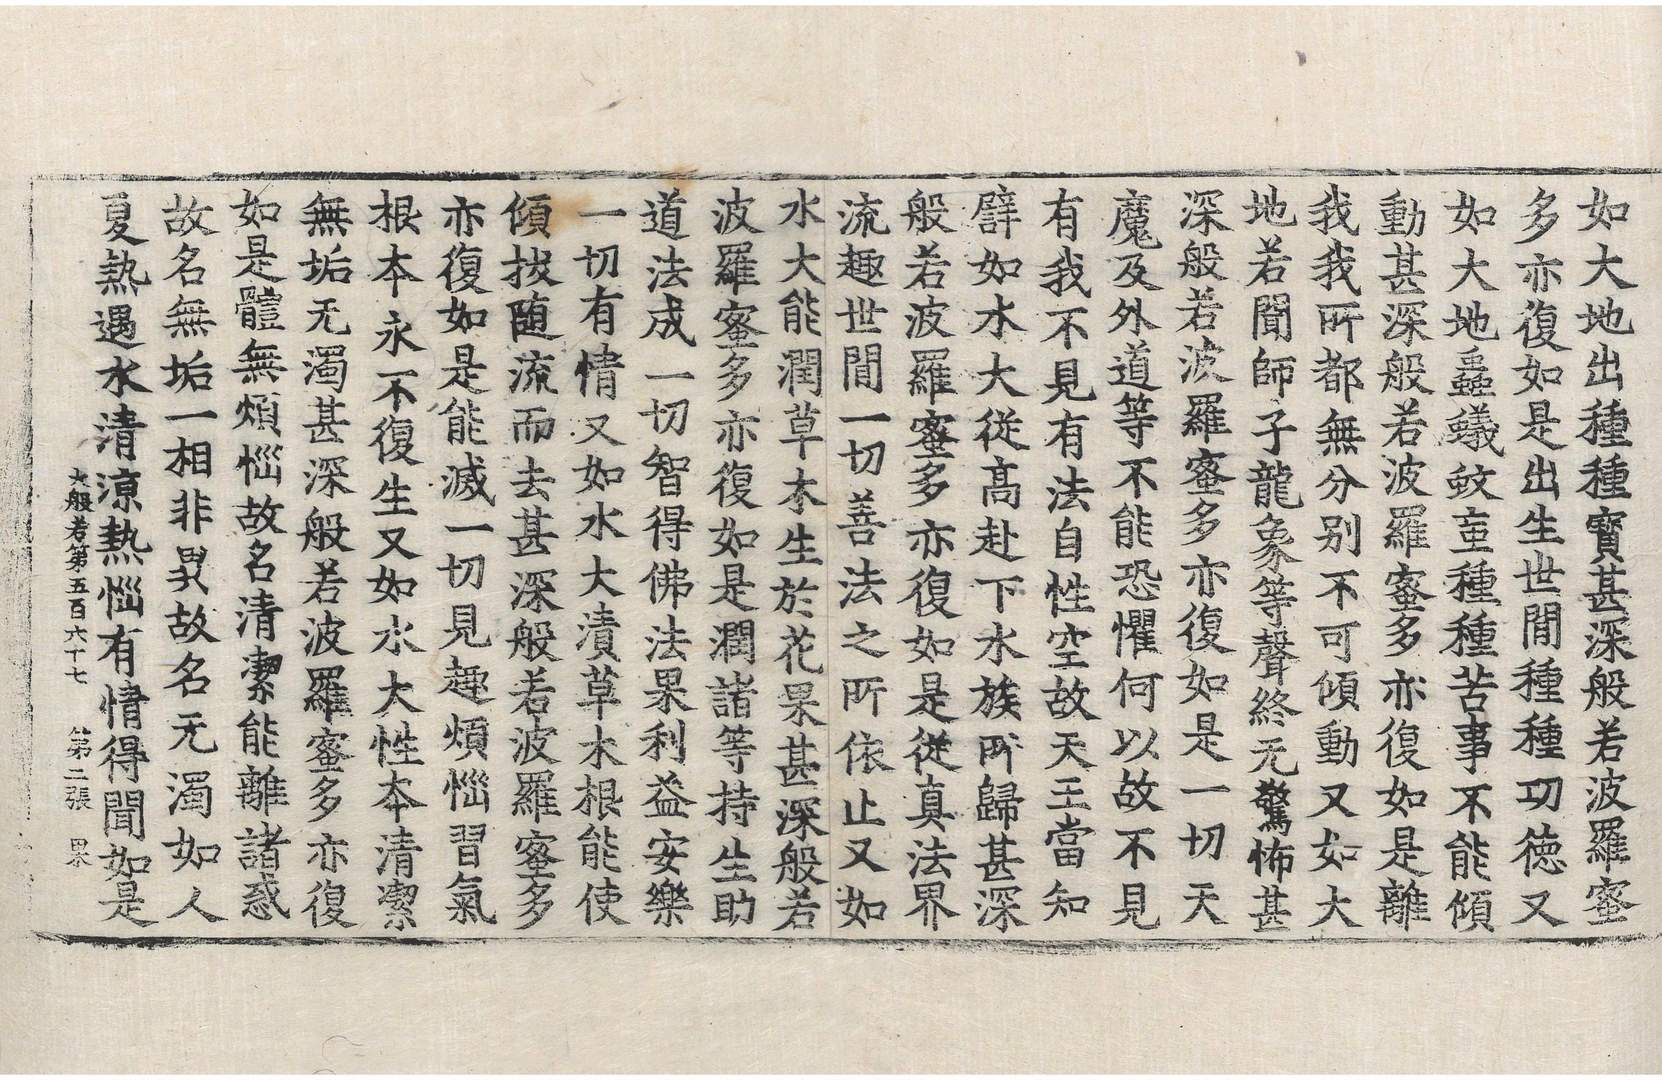 如大地出種種寶甚深般若波羅蜜
多亦復如是出生世間種種功德又
如大地蟲蟻蚊䖝種種苦事不能傾
動甚深般若波羅蜜多亦復如是離
我我所都無分别不可傾動又如大
地若聞師子龍象等聲終无驚怖甚
深般若波羅蜜多亦復如是一切天
魔及外道等不能恐懼何以故不見
有我不見有法自性空故天王當知
譬如水大從高赴下水族所歸甚深
般若波羅蜜多亦復如是從真法界
流趣世間一切善法之所依止又如
水大能潤草木生於花果甚深般若
波羅蜜多亦復如是潤諸等持生助
道法成一切智得佛法果利益安樂
一切有情又如水大漬草木根能使
傾拔随流而去甚深般若波羅蜜多
亦復如是能滅一切見趣煩惱習氣
根本永不復生又如水大性本清潔
無垢无濁甚深般若波羅蜜多亦復
如是體無煩惱故名清潔能離諸惑
故名無垢一相非異故名无濁如人
夏熱遇水清涼熱惱有情得聞如是
大般若第五百六十七 第二張 界